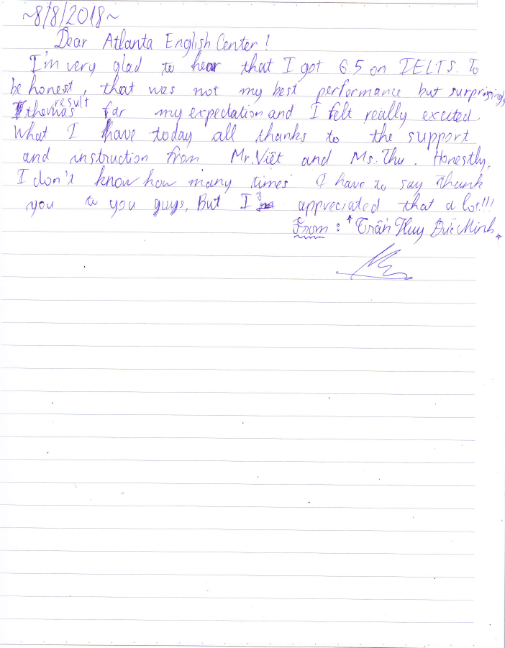 ~8/8/2018~
Dear Atlanta English Center!
I'm very glad to hear that I got 6.5 on IELTS. To
be honest, that was not my best performance but surprisingly,
the result was far my expectation and I felt really excited.
What I have today all thanks to the support
and instruction from Mr. Việt and Ms. Thu. Honestly,
I don't know how many times I have to say thank
you to you guys. But I appreciated that a lot!!!
From: Trần Huy Đức Minh